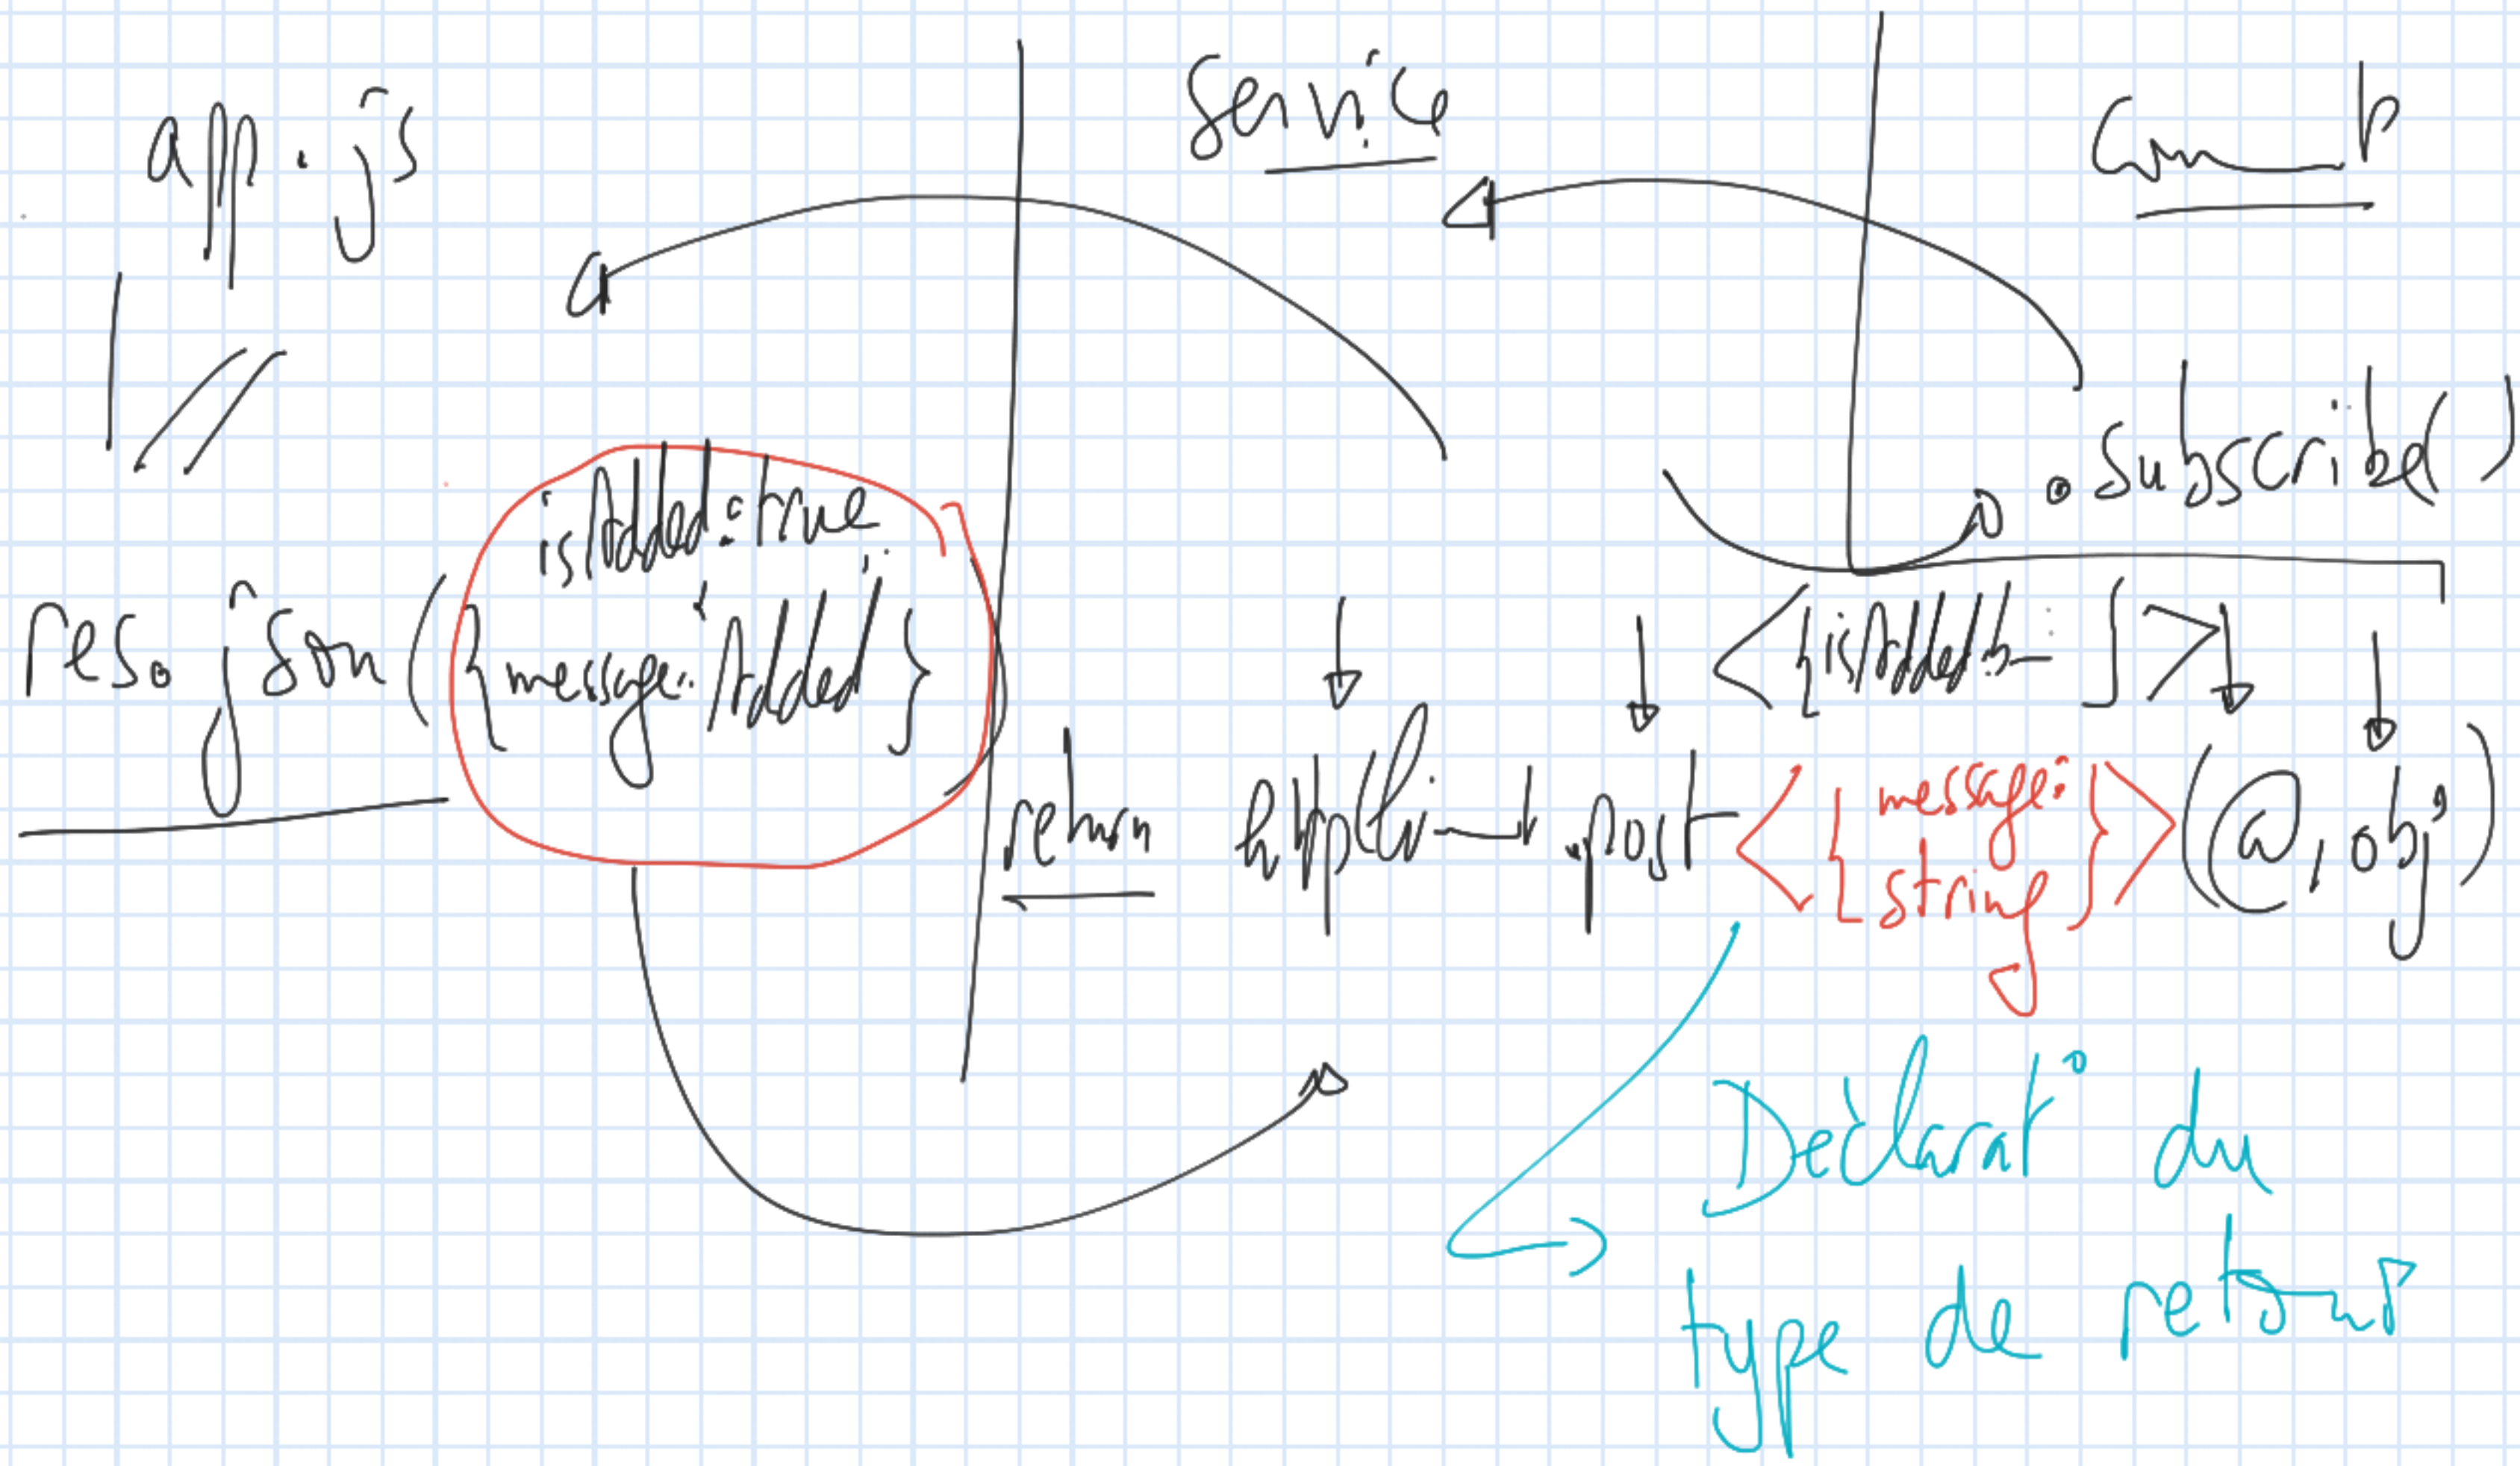 app.js
service
.subscribe()
isAdded:true
res.json({message:'Added'})
<{isAdded:b }>
return httpCli t.post<{message:
string}>(@, obj)
Déclarat° du
type de retour